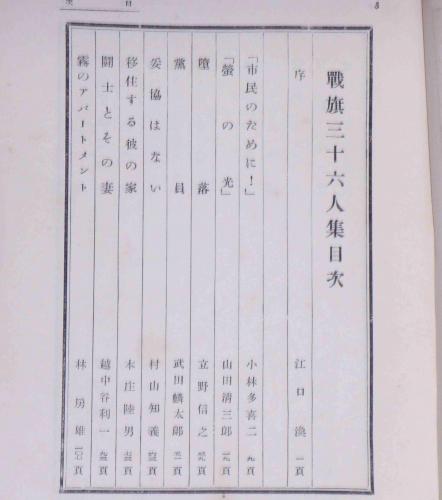 目次
戰旗三十六人集目次
序 江口渙 一頁
「市民のために!」 小林多喜二 九頁
「螢の光」 山田清三郎 頁
墮落 立野信之 頁
黨員 武田麟太郎 頁
妥協はない 村山知義 頁
移住する彼の家 本庄陸男 頁
鬪士とその妻 越中谷利一 頁
霧のアパートメント 林房雄 頁